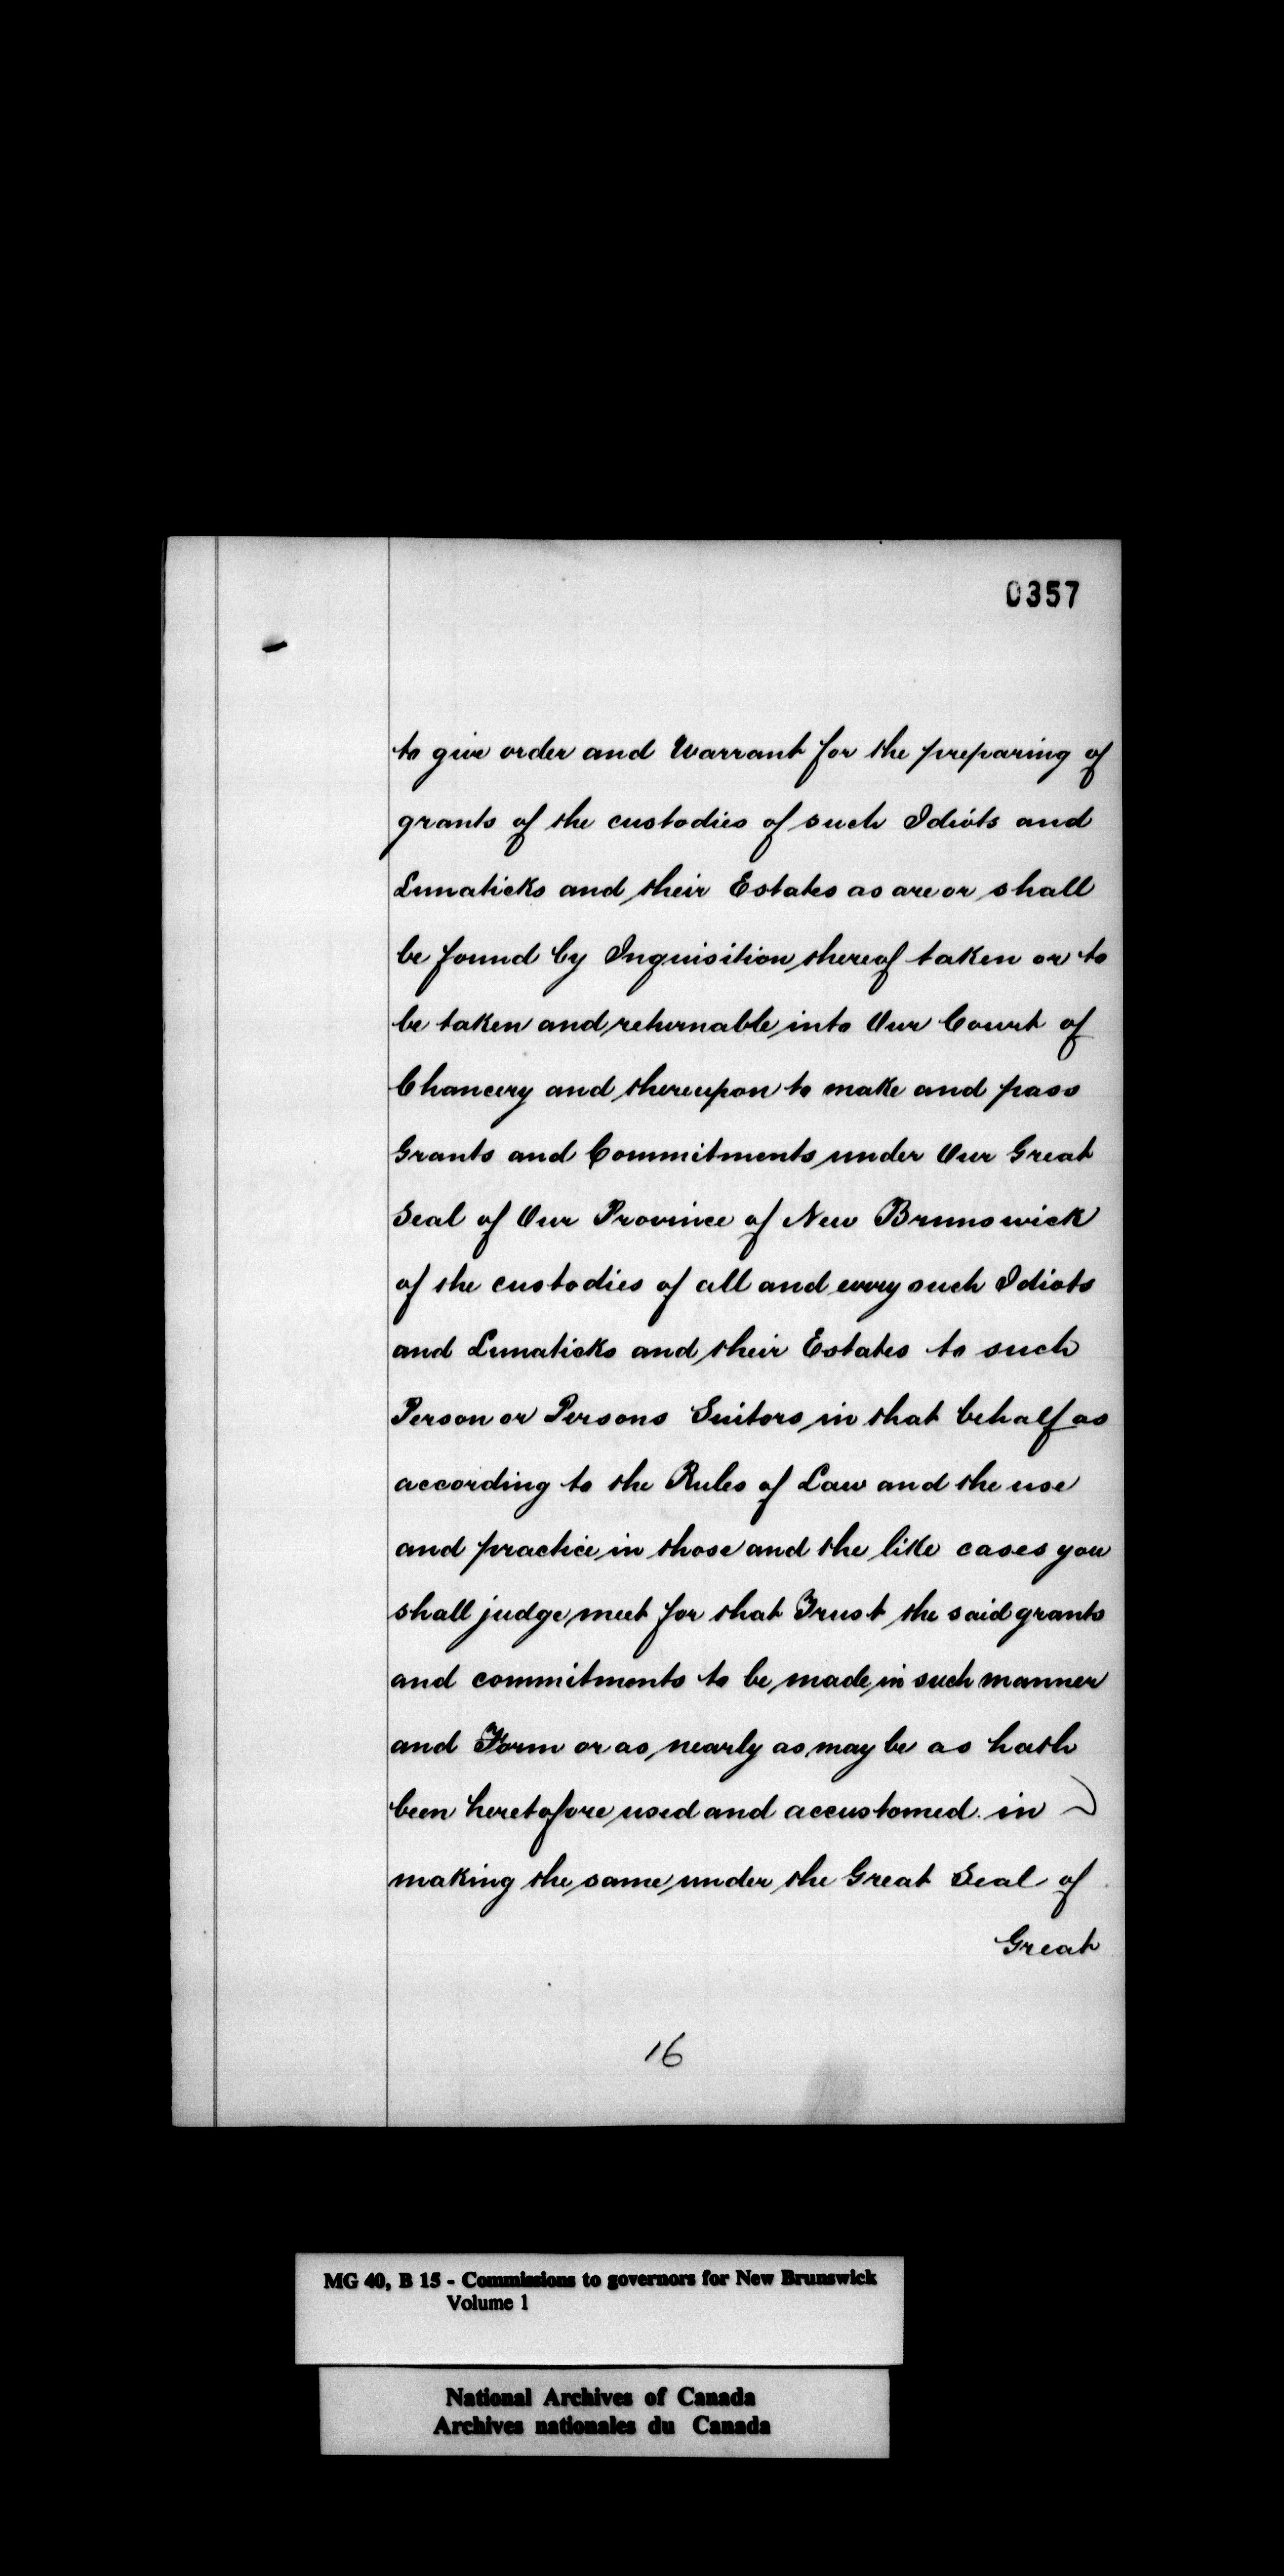 0357
to give order and Warrant for the preparing of
grants of the custodies of such Idiots and
Lunaticks and their Estates as are or shall
be found by Inquisition thereof taken or to
be taken and returnable into Our Court of
Chancery and thereupon to make and pass
Grants and Commitments under Our Great
Seal of Our Province of New Brunswick
of the custodies of all and every such Idiots
and Lunaticks and their Estates to such
Person or Persons Suitors in that behalf as
according to the Rules of Law and the use
and practice in those and the like cases you
shall judge meet for that Trust the said grants
and commitments to be made in such manner
and Form or as nearly as may be as hath
been heretofore used and accustomed in
making the same under the Great Seal of
Great
16
MG 40, B 15 - Commissions to governors for New Brunswick
Volume 1
National Archives of Canada
Archives nationales du Canada